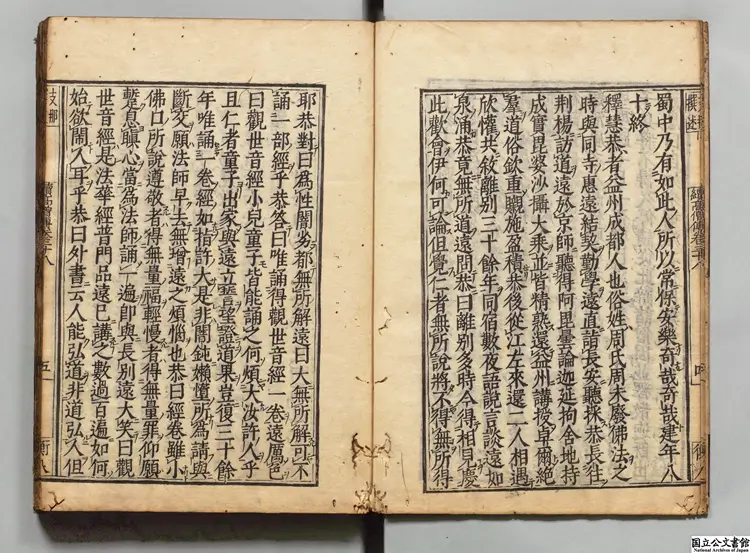 撰述
蜀中乃有如此人所以常保安樂奇哉奇哉建年八
十終
釋慧恭者益州成都人也俗姓周氏周末廢佛法之
時與同寺惠遠結契勤學遠直詣長安聽採恭長往
荊楊訪道遠於京師聽得阿毘曇論迦延拘舍地持
成實毘婆沙攝大乘並皆精熟還益州講授卓爾絶
羣道俗欽重䞋施盈積恭後從江左來還二人相遇
欣懽共敘離別三十餘年同宿數夜語說言談遠如
泉涌恭竟無所道遠問恭曰離別多時今得相見慶
此歡會伊何可論但覺仁者無所說將不得無所得
耶恭對曰為性闇劣都無所解遠曰大無所解可不
誦一部經乎恭答曰唯誦得觀世音經一卷遠厲色
曰觀世音經小兒童子皆能誦之何煩大汝許人乎
且仁者童子出家與遠立誓望證道果豈復三十餘
年唯誦一卷經如指許大是非闇鈍懶墮所為請與
斷交願法師早去無增遠之煩惱也恭曰經卷雖小
佛口所說遵敬者得無量福輕慢者得無量罪仰願
蹔息瞋心當為法師誦一遍即與長別遠大笑曰觀
世音經是法華經普門品遠已講之數過百遍如何
始欲鬧人耳乎恭曰外書云人能弘道非道弘人但
支那 五
国立公文書館
National Archives of Japan